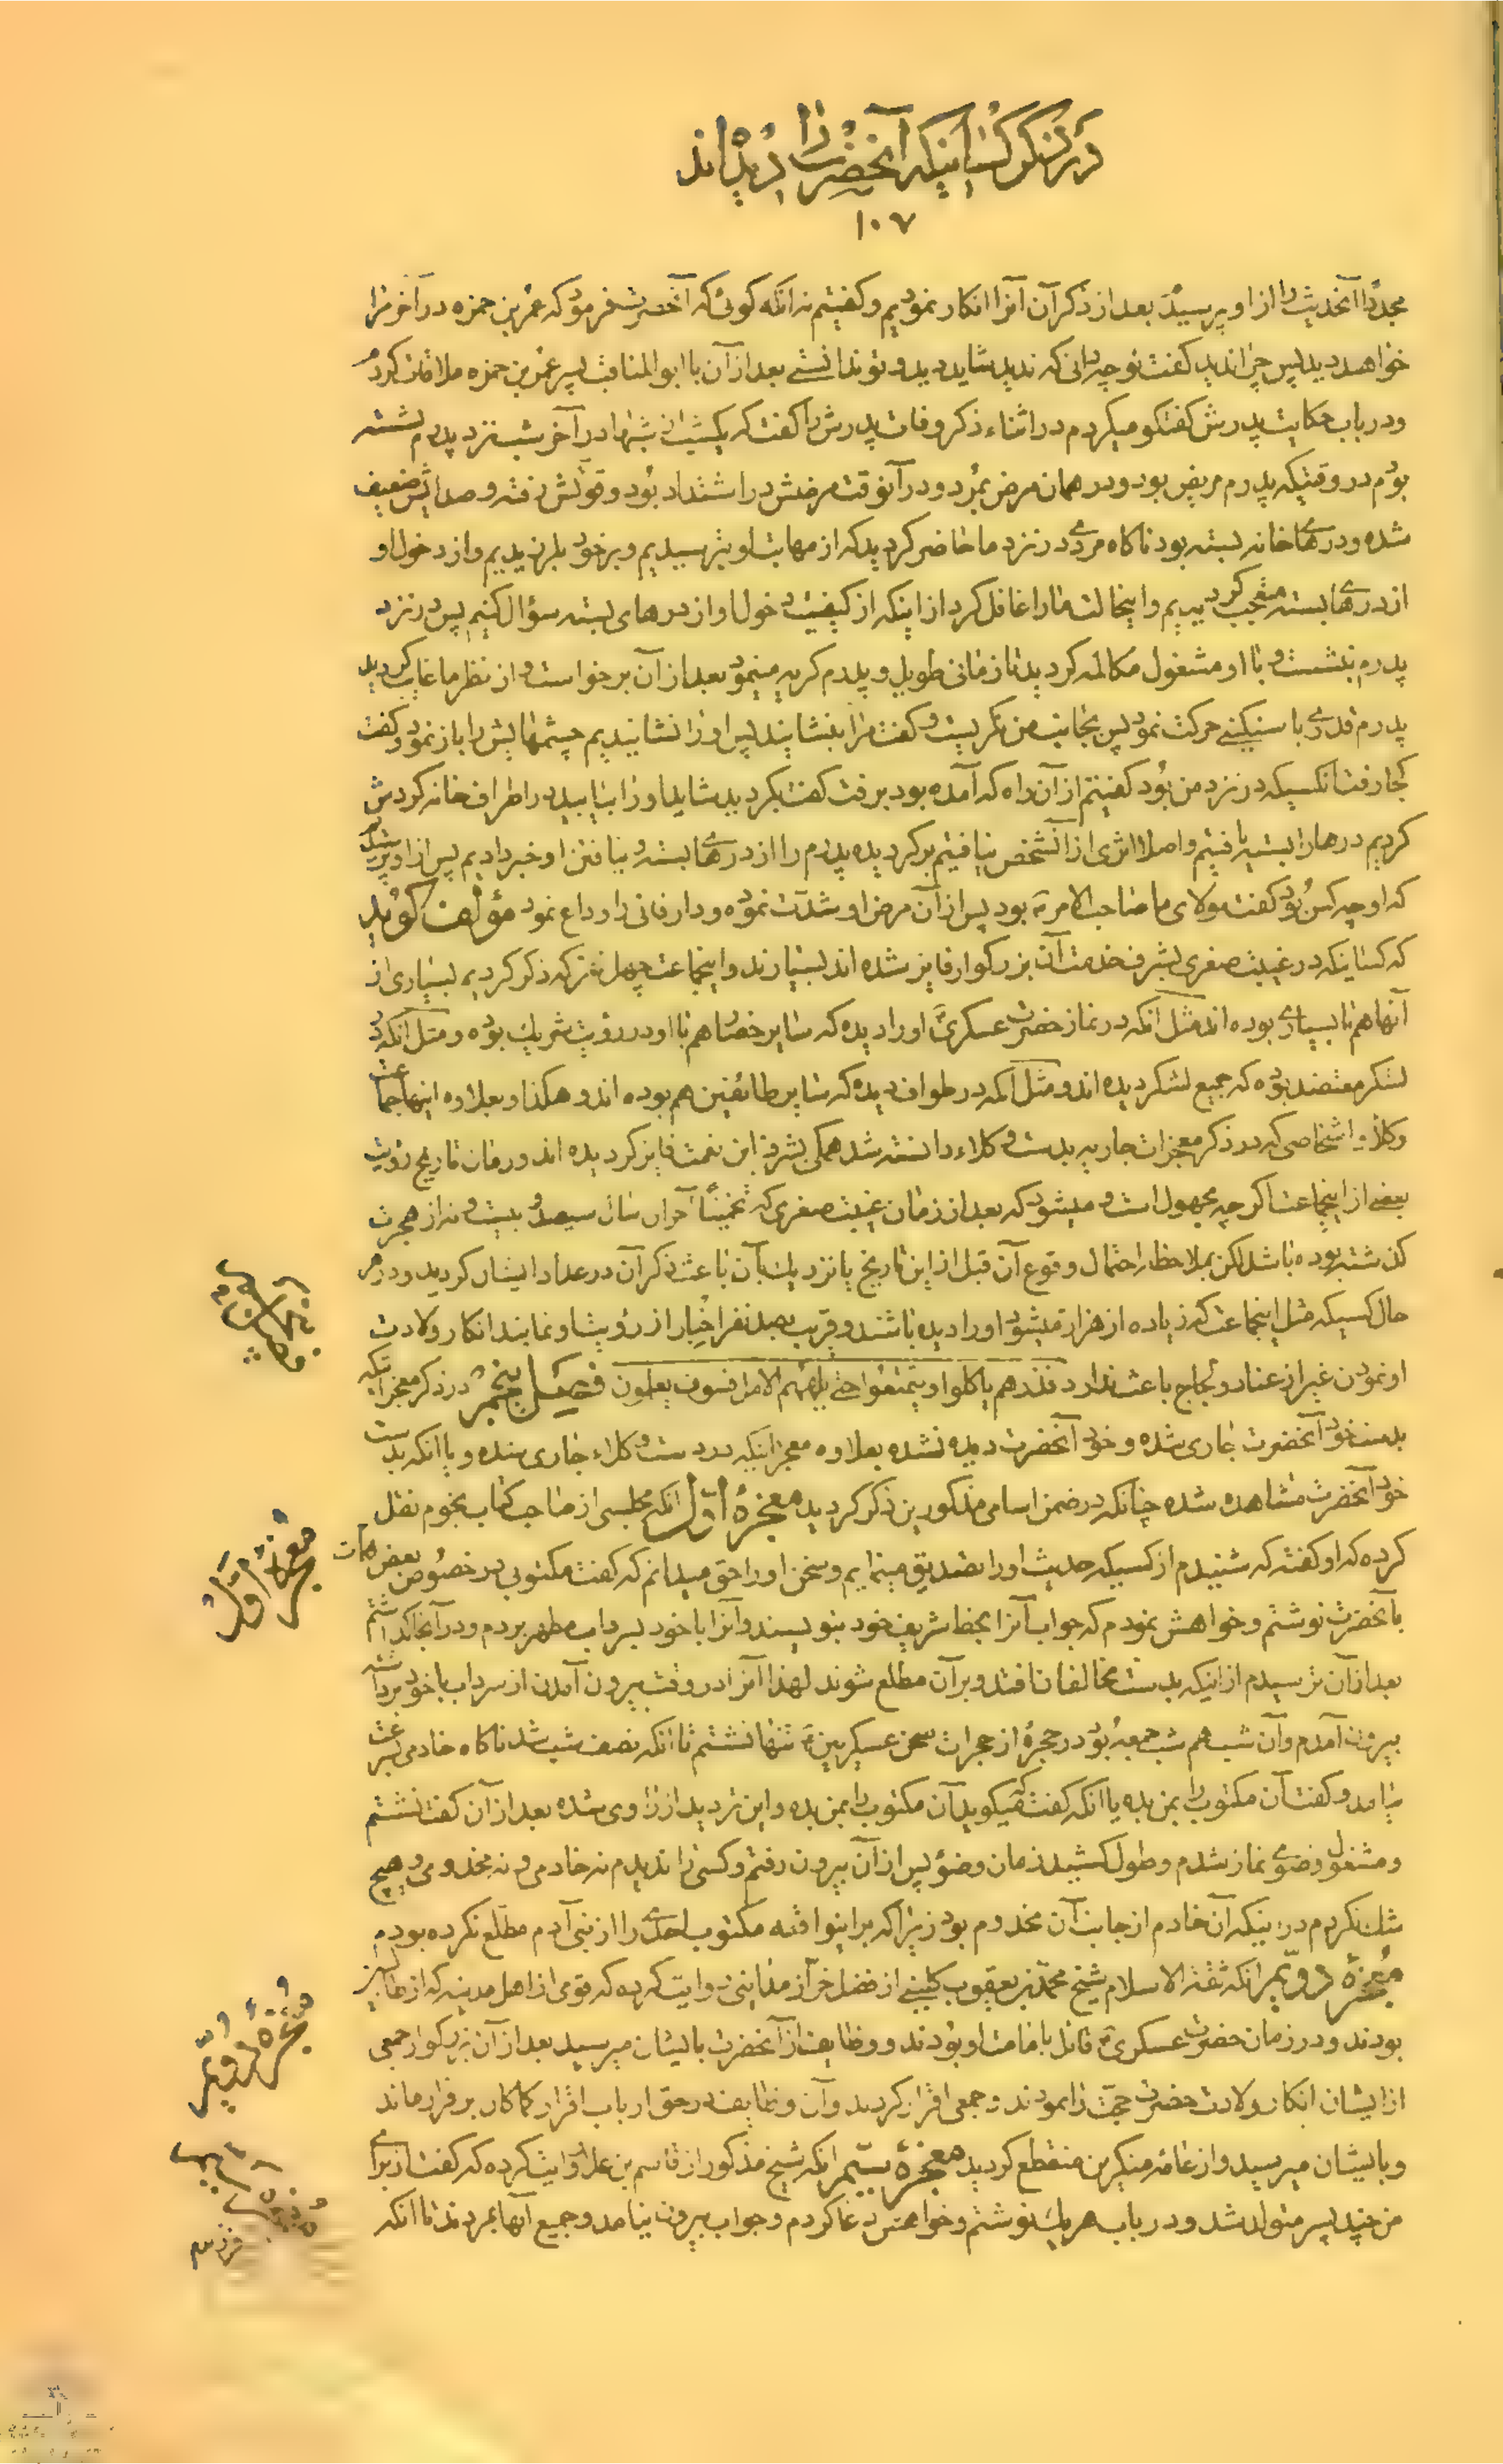 در ذکر کسانیکه آنحضرت را دیده اند
۱۰۷
مجدداً آنحدیث را از او پرسید بعد از ذکر آن آنرا انکار نمودیم و کفتیم نه انکه کوئی که آنحضرت فرمود که عمر بن حمزه در آخر مرا
خواهد دید پس چرا ندید کفت تو چه دانی که ندید شاید دید و تو ندانستی بعد از آن با ابو المناقب پسر عمر بن حمزه ملاقات کردم
و در باب حکایت پدرش کفتکو میکردم در اثناء ذکر وفات پدرش را کفت که یکشب از شبها در آخر شب نزد پدرم نشسته
بودم در وقتیکه پدرم مریض بود و در همان مرض بمرد و در آنوقت مرضش در اشتداد بود و قوتش رفته و صدایش ضعیف
شده و درهای خانه بسته بود ناکاه مردی در نزد ما حاضر کردید که از مهابت او بترسیدیم و بر خود بلرزیدیم و از دخول او
از درهای بسته متعجب کردیدیم و اینحالت ما را غافل کرد از اینکه از کیفیت دخول او از درهای بسته سؤال کنیم پس در نزد
پدرم بنشست و با او مشغول مکالمه کردید تا زمانی طویل و پدرم کریه مینمود بعد از آن برخواست و از نظر ما غایب کردید
پدرم قدری با سنکینی حرکت نمود پس بجانب من نکریست و کفت مرا بنشانید پس او را نشانیدیم چشمهایش را باز نمود و کفت
کجا رفت انکسیکه در نزد من بود کفتیم از آن راه که آمده بود برفت کفت بکردید شاید او را بیابید در اطراف خانه کردش
کردیم درها را بسته یافتیم و اصلا اثری از آنشخص نیافتیم برکردیده پدرم را از درهای بسته و نیافتن او خبر دادیم پس از او پرسیدیم
که او چه کس بود کفت مولای ما صاحب الامر ع بود پس از آن مرض او شدت نموده و دار فانی را وداع نمود مؤلف کوید
که کسانیکه در غیبت صغری بشرف خدمت آن بزرکوار فایز شده اند بسیارند و اینجماعت چهل نفر که ذکر کردیم بسیاری از
آنها هم با بسیاری بوده اند مثل انکه در نماز حضرت عسکری ع او را دیده که سایر حضار هم با او در رؤیت شریك بوده و مثل انکه در
لشکر معتضد بوده که جمیع لشکر دیده اند و مثل انکه در طواف دیده که سایر طائفین هم بوده اند و هکذا و بعلاوه اینها جماعت
وکلاء و اشخاصی که در ذکر معجزات جاریه بدست وکلاء دانسته شد همکی بشرف این نعمت فایز کردیده اند و زمان تاریخ رؤیت
بعضی از اینجماعت اکر چه مجهول است و میشود که بعد از زمان غیبت صغری که تخمیناً آخر آن سال سیصد و بیست و نه از هجرت
کذشته بوده باشد لکن بملاحظه احتمال وقوع آن قبل از این تاریخ یا نزدیك بآن باعث ذکر آن در عداد ایشان کردید و در هر
حال کسیکه مثل اینجماعت که زیاده از هزار میشود او را دیده باشند و قریب بصد نفر اخبار از رؤیت او نمایند انکار ولادت
او نمودن غیر از عناد و لجاج باعث ندارد فذرهم یاکلوا و یتمتعوا حتی یلههم الامل فسوف یعلمون فصل پنجم در ذکر معجزاتیکه
بدست خود آنحضرت جاری شده و خود آنحضرت دیده نشده بعلاوه معجزاتیکه در دست وکلاء جاری شده و یا انکه بدست
خود آنحضرت مشاهده شده چنانکه در ضمن اسامی مذکورین ذکر کردید معجزهٔ اول انکه مجلسی از صاحب کتاب نجوم نقل
کرده که او کفته که شنیدم از کسیکه حدیث او را تصدیق مینمایم و سخن او را حق میدانم که کفت مکتوبی در خصوص بعض مهمات
بآنحضرت نوشتم و خواهش نمودم که جواب آنرا بخط شریف خود بنویسند و آنرا با خود بسرداب مطهر بردم و در آنجا کذاشتم
بعد از آن ترسیدم از اینکه بدست مخالفان افتد و بر آن مطلع شوند لهذا آنرا در وقت بیرون آمدن از سرداب با خود برداشته
بیرون آمدم و آن شب هم شب جمعه بود در حجرهٔ از حجرات صحن عسکریین ع تنها نشستم تا انکه نصف شب شد ناکاه خادمی بسرعت
بیامد و کفت آن مکتوب را بمن بده یا انکه کفت که میکوید آن مکتوب را بمن بده و این تردید از راوی شده بعد از آن کفت نشستم
و مشغول وضوی نماز شدم و طول کشید زمان وضو پس از آن بیرون رفتم و کسی را ندیدم نه خادمی و نه مخدومی و هیچ
شك نکردم در اینکه آن خادم از جانب آن مخدوم بود زیرا که بر اینواقعه مکتوب احدی را از بنی آدم مطلع نکرده بودم
معجزهٔ دویم انکه ثقة الاسلام شیخ محمد بن یعقوب کلینی از فضل خزاز مداینی روایت کرده که قومی از اهل مدینه که از طالبیین
بودند و در زمان حضرت عسکری ع قائل بامامت او بودند و وظایف از آنحضرت بایشان میرسید بعد از آن بزرکوار جمعی
از ایشان انکار ولادت حضرت حجت را نمودند و جمعی اقرار کردند و آن وظایف در حق ارباب اقرار کماکان برقرار ماند
و بایشان میرسید و از عامهٔ منکرین منقطع کردید معجزهٔ سیم انکه شیخ مذکور از قاسم بن علا روایت کرده که کفت از برای
من چند پسر متولد شد و در باب هر یك نوشتم و خواهش دعا کردم و جواب بیرون نیامد و جمیع آنها بمردند تا انکه
معجزهٔ اول
معجزهٔ دویم